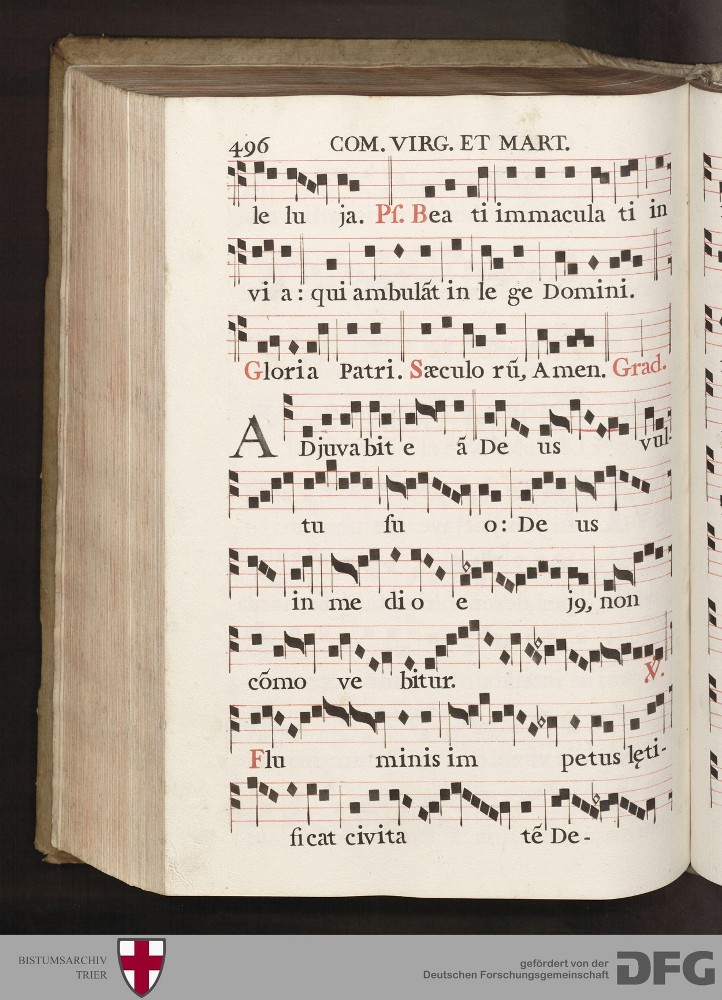 496 COM. VIRG. ET MART.
le lu ja. Pſ. Bea ti immacula ti in
vi a: qui ambulãt in le ge Domini.
Gloria Patri. Sæculo rũ, Amen. Grad.
ADjuvabit e ã De us vul-
tu ſu o: De us
in me dio e j9, non
cõmo ve bitur. ℣.
Flu minis im petus lęti-
ficat civita tẽ De-
BISTUMSARCHIV
TRIER
gefördert von der
Deutschen Forschungsgemeinschaft
DFG